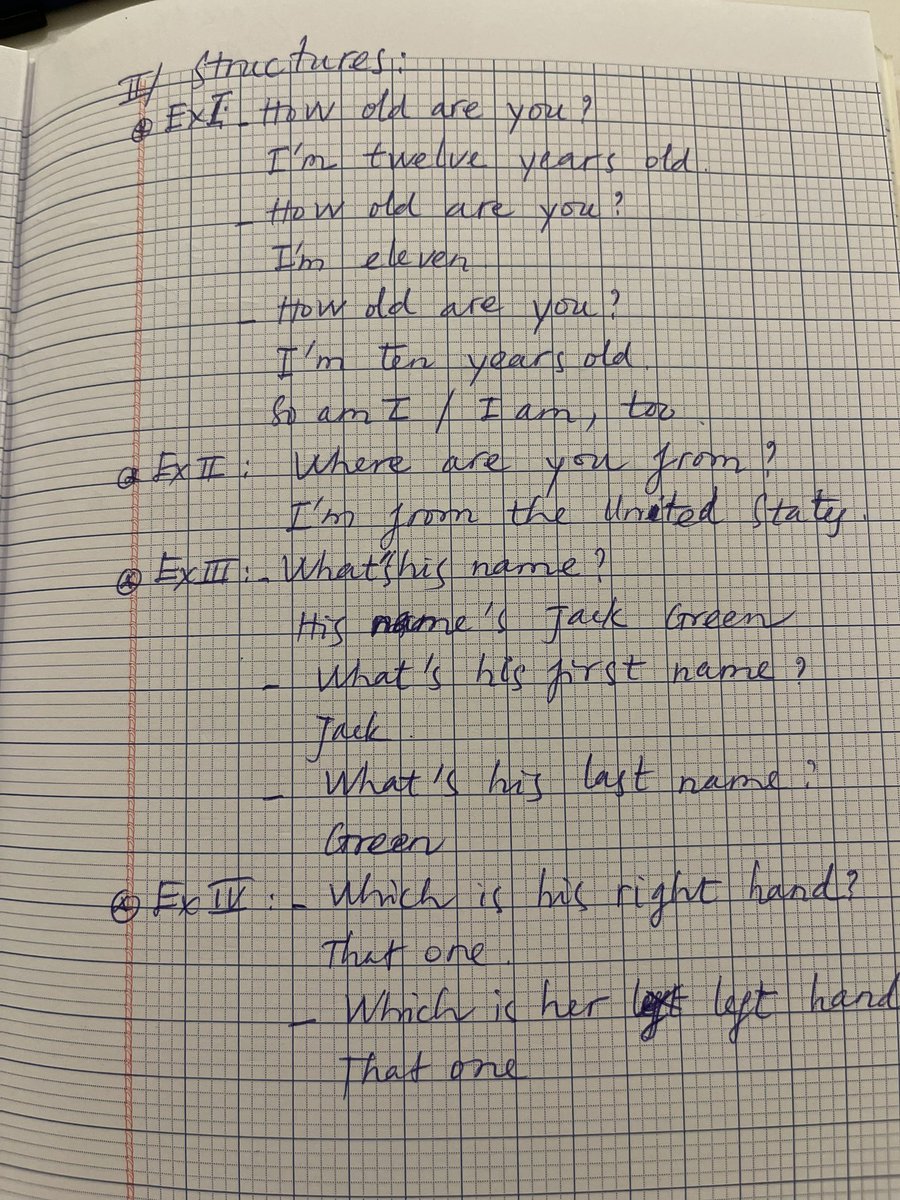 II/ Structures:
ExI: - How old are you?
I'm twelve years old.
- How old are you?
I'm eleven
- How old are you?
I'm ten years old.
So am I / I am, too.
Ex II: Where are you from?
I'm from the United States.
Ex III: - What's his name?
His name's Jack Green
- What's his first name?
Jack.
- What's his last name?
Green
Ex IV: - Which is his right hand?
That one.
- Which is her left hand
That one